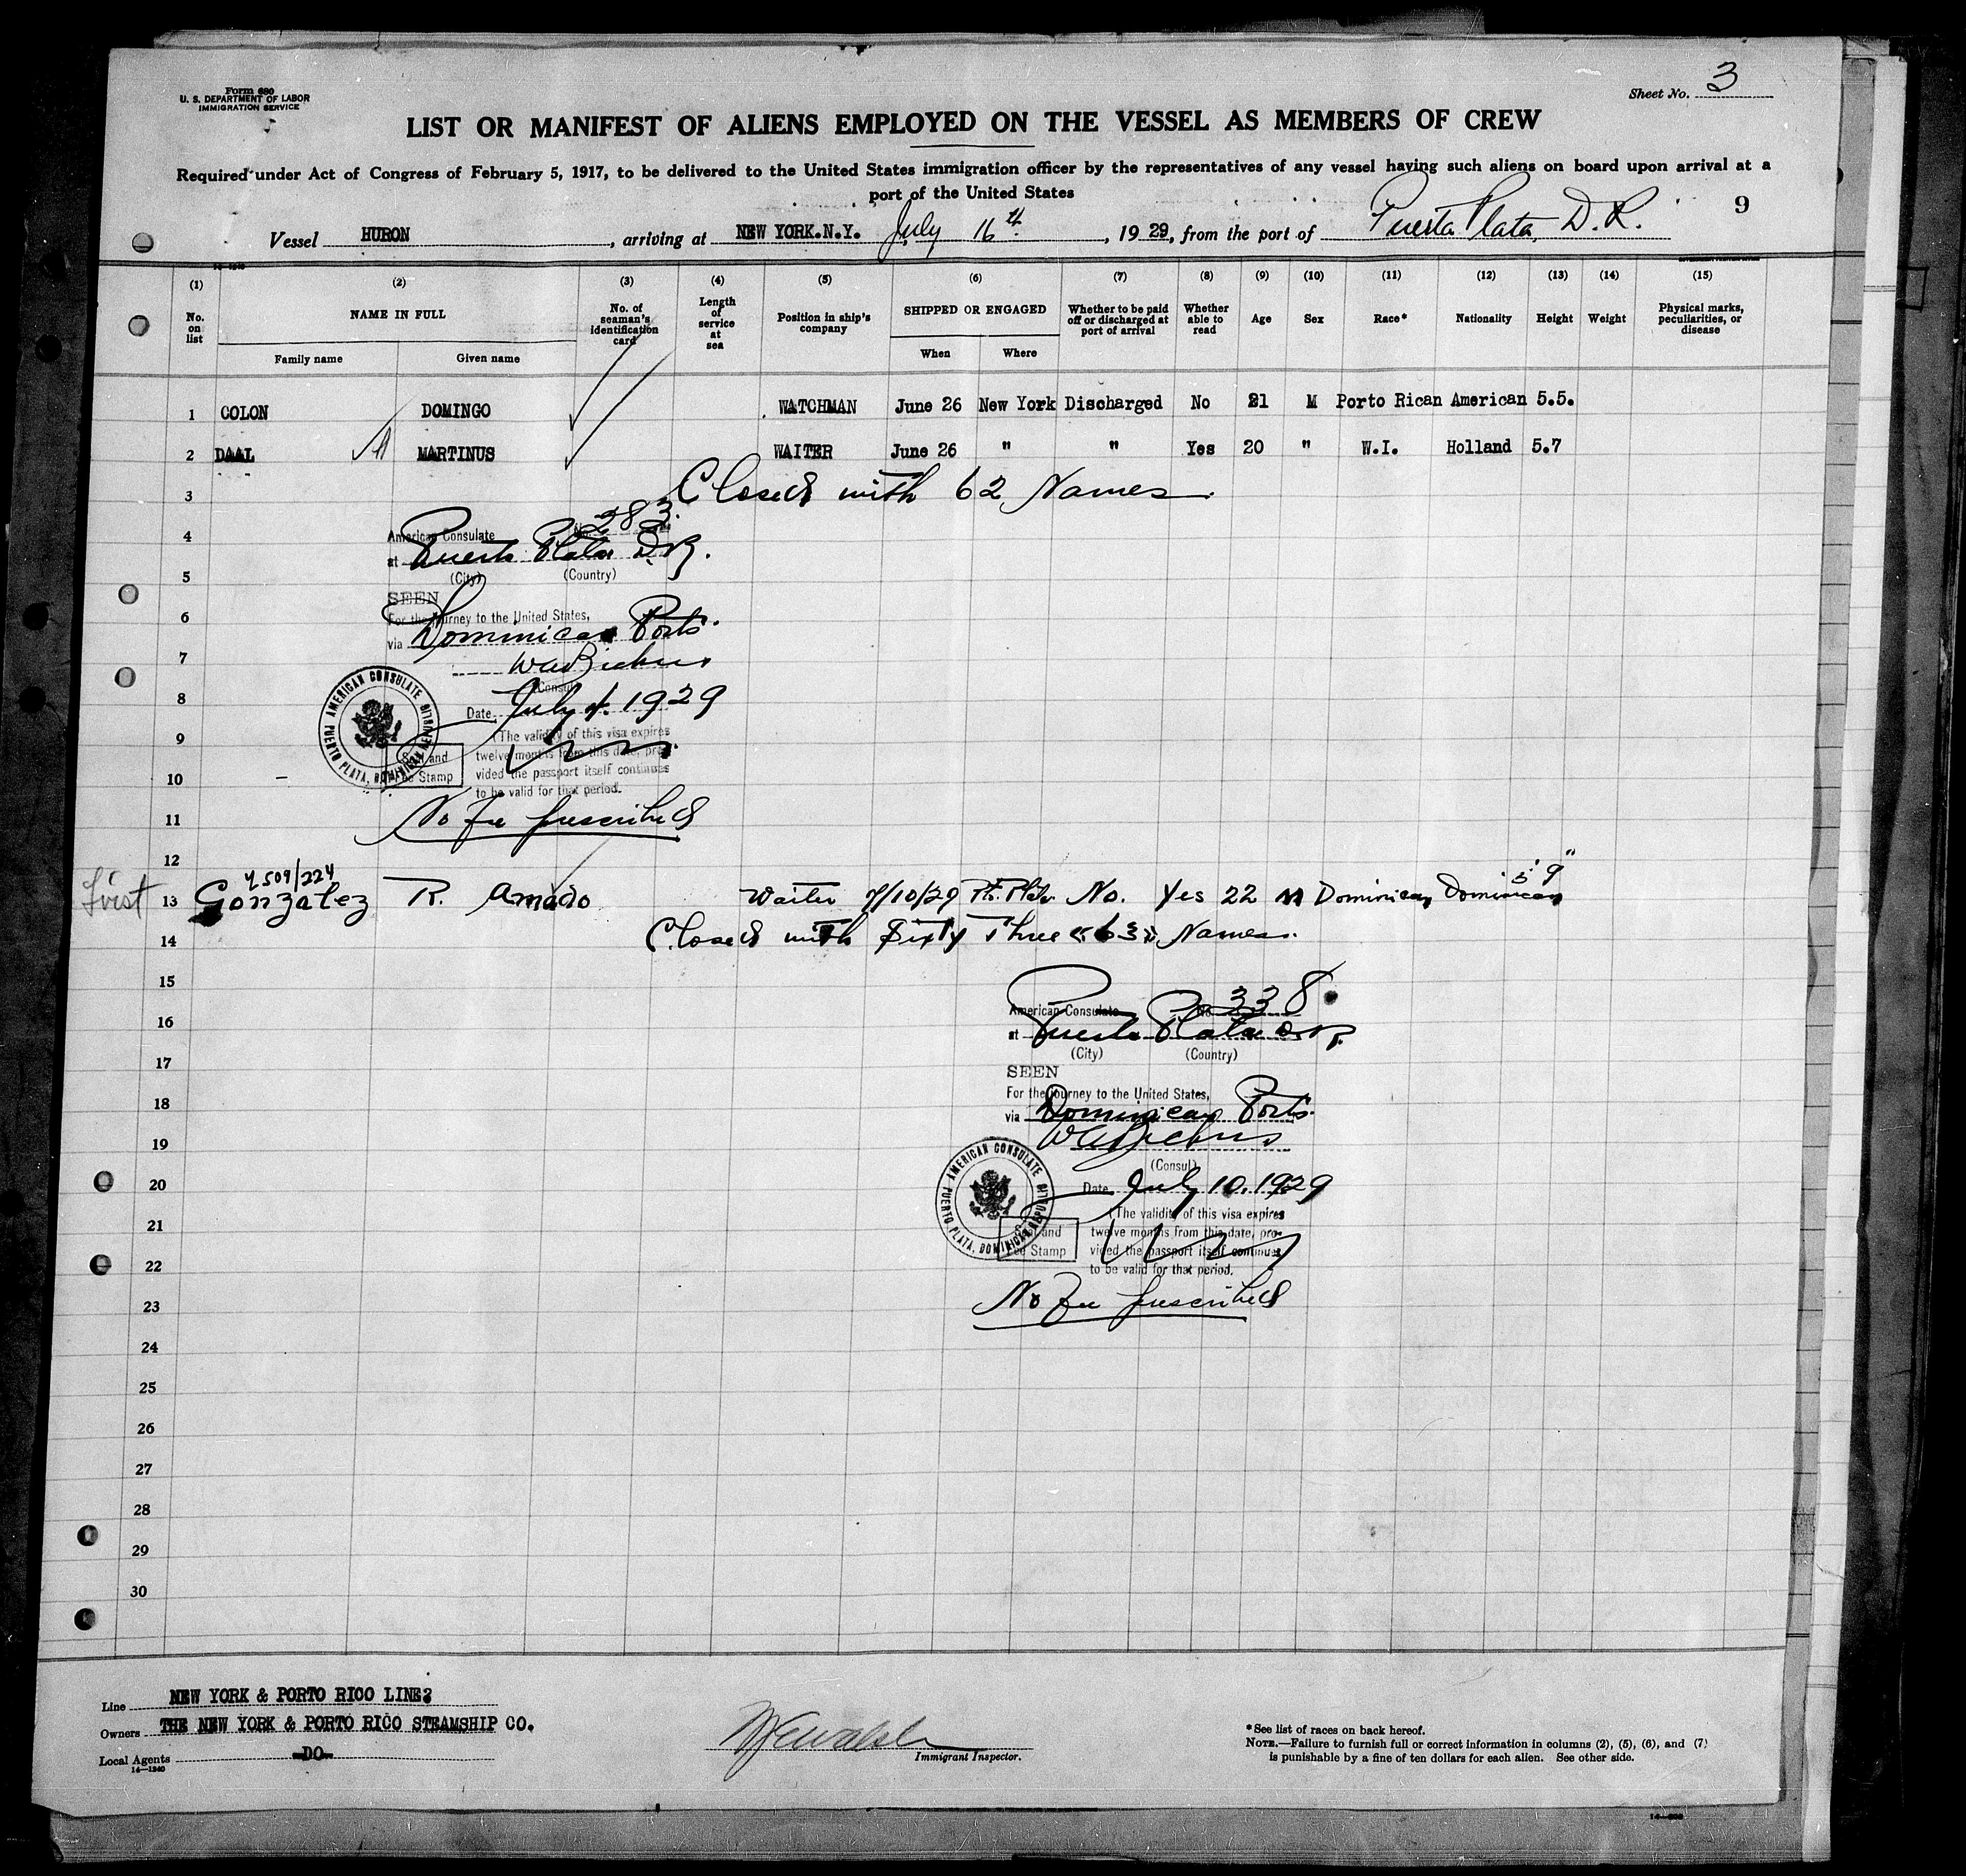 Form 680
U. S. DEPARTMENT OF LABOR
IMMIGRATION SERVICE
Sheet No. 3
LIST OR MANIFEST OF ALIENS EMPLOYED ON THE VESSEL AS MEMBERS OF CREW
Required under Act of Congress of February 5, 1917, to be delivered to the United States immigration officer by the representatives of any vessel having such aliens on board upon arrival at a
port of the United States
9
Vessel HURON, arriving at NEW YORK.N.Y. July 16th, 1929, from the port of Puerta Plata, D.R.
(1) (2) (3) (4) (5) (6) (7) (8) (9) (10) (11) (12) (13) (14) (15)
No. on list NAME IN FULL No. of seaman's identification card Length of service at sea Position in ship's company SHIPPED OR ENGAGED Whether to be paid off or discharged at port of arrival Whether able to read Age Sex Race* Nationality Height Weight Physical marks, peculiarities, or disease
Family name Given name When Where
1 COLON DOMINGO WATCHMAN June 26 New York Discharged No 21 M Porto Rican American 5.5.
2 DAAL MARTINUS WAITER June 26 " " Yes 20 " W.I. Holland 5.7
3 Closed with 62 Names
4 American Consulate No. 283
at Puerto Plata D.R.
5 (City) (Country)
SEEN
6 For the journey to the United States,
via Dominican Ports.
7
(Consul)
8 Date July 1929
AMERICAN CONSULATE
PUERTO PLATA, DOMINICAN REPUBLIC
9 (The validity of this visa expires
twelve months from this date, pro-
10 vided the passport itself continues
to be valid for that period.
Seal and
Fee Stamp
11 No Fee prescribed
12
4509/224
First 13 Gonzalez R. Amado Waiter 7/10/29 Pt. Plata No. Yes 22 M Dominican Dominican 5' 9"
14 Closed with Sixty Three "63" Names.
15
American Consulate No. 338
16 at Puerto Plata D.R.
17 (City) (Country)
SEEN
18 For the journey to the United States,
via Dominican Ports.
19
(Consul)
20 Date July 10, 1929
AMERICAN CONSULATE
PUERTO PLATA, DOMINICAN REPUBLIC
21 (The validity of this visa expires
twelve months from this date, pro-
22 vided the passport itself continues
to be valid for that period.
Seal and
Fee Stamp
23 No Fee prescribed
24
25
26
27
28
29
30
Line NEW YORK & PORTO RICO LINE?
Owners THE NEW YORK & PORTO RICO STEAMSHIP CO.
Local Agents -DO-
14—1240
Immigrant Inspector.
*See list of races on back hereof.
NOTE.—Failure to furnish full or correct information in columns (2), (5), (6), and (7)
is punishable by a fine of ten dollars for each alien. See other side.